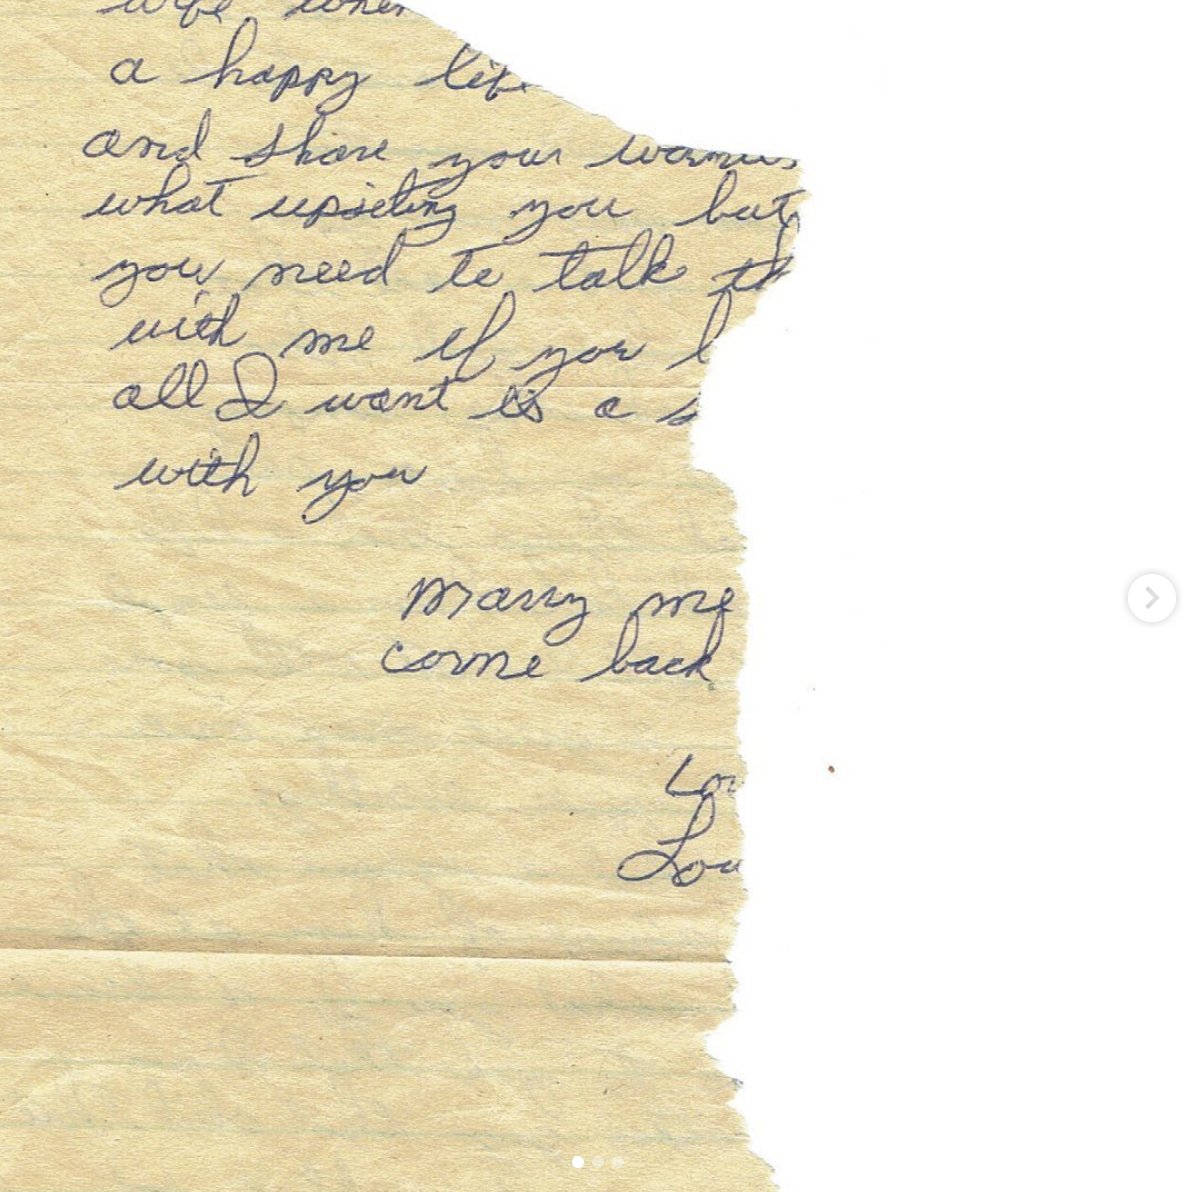 wife when
a happy life
and share your warmn
what upseting you but
you need to talk th
with me if you l
all I want is a s
with you
Marry me
come back
Lov
Lou